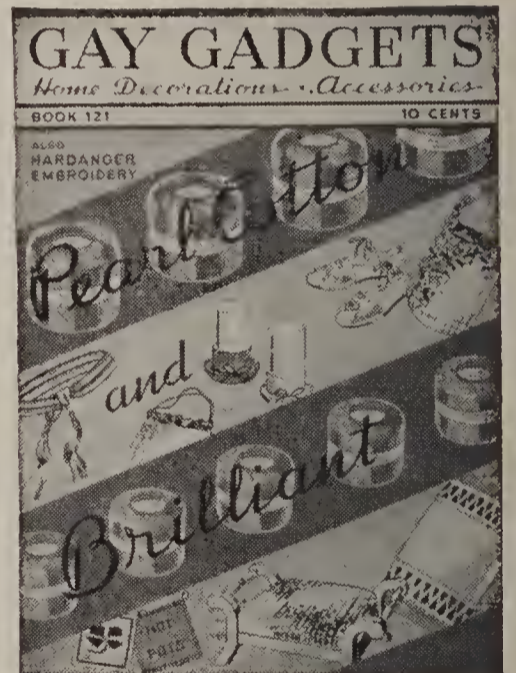 GAY GADGETS
Home Decorations - Accessories
BOOK 121 10 CENTS
ALSO
HARDANGER
EMBROIDERY
Pearl Cotton
and
Brilliant
HOT